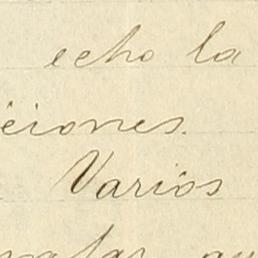 echo la
ciones.
Varios